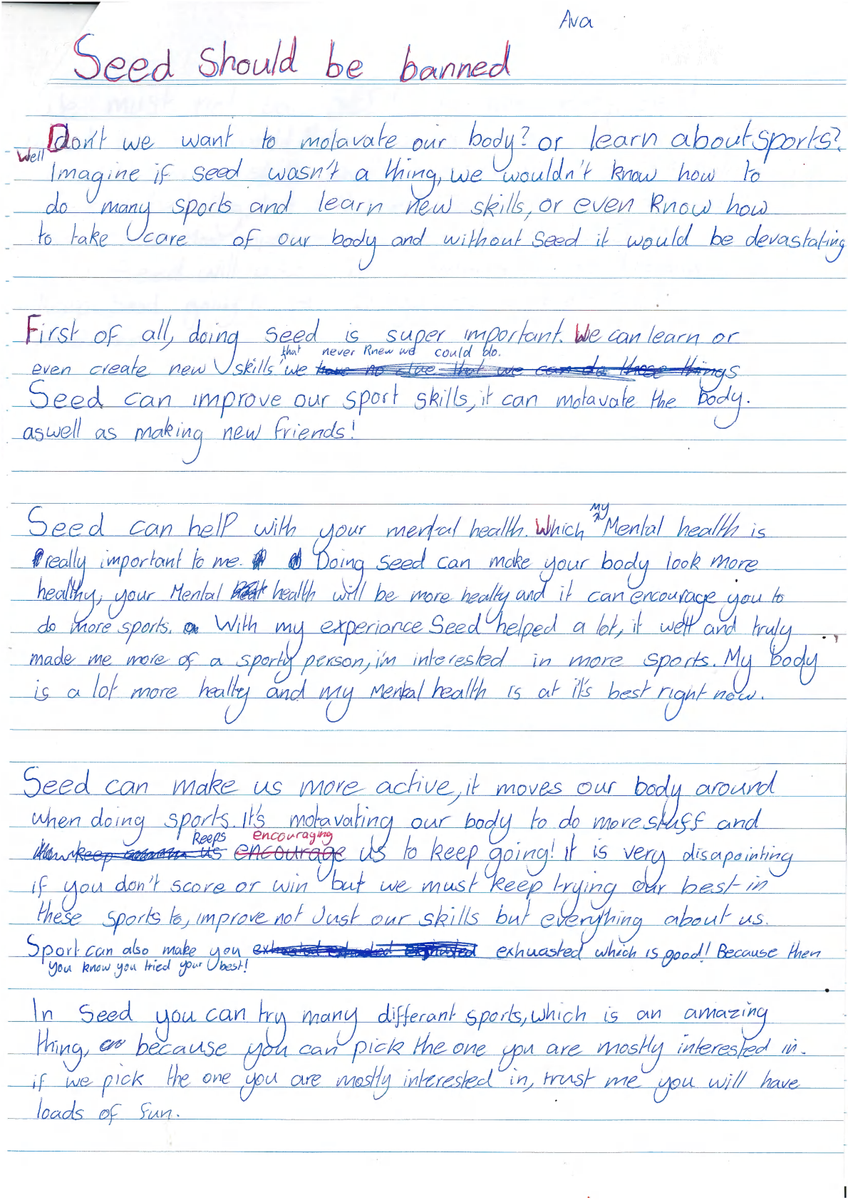 Ava
Seed should be banned
Well Don't we want to motavate our body? or learn about sports?
Imagine if seed wasn't a thing, we wouldn't know how to
do many sports and learn new skills, or even know how
to take care of our body and without seed it would be devastating
First of all, doing seed is super important. We can learn or
that never knew we could do.
even create new skills we have no clue that we can do these things
Seed can improve our sport skills, it can motavate the body.
aswell as making new friends!
Seed can help with your mental health. Which my Mental health is
really important to me. Doing seed can make your body look more
healthy, your Mental health will be more healty and it can encourage you to
do more sports. With my experiance Seed helped a lot, it well and truly
made me more of a sporty person, i'm interested in more sports. My body
is a lot more healty and my Mental health is at it's best right now.
Seed can make us more active, it moves our body around
when doing sports. It's motavating our body to do more stuff and
keeps encouraging
keep us encourage us to keep going! it is very disapointing
if you don't score or win but we must keep trying our best in
these sports to, improve not Just our skills but everything about us.
Sport can also make you exhuasted which is good! Because then
you know you tried your best!
In Seed you can try many differant sports, which is an amazing
thing, because you can pick the one you are mostly interested in.
if we pick the one you are mostly interested in, trust me you will have
loads of fun.